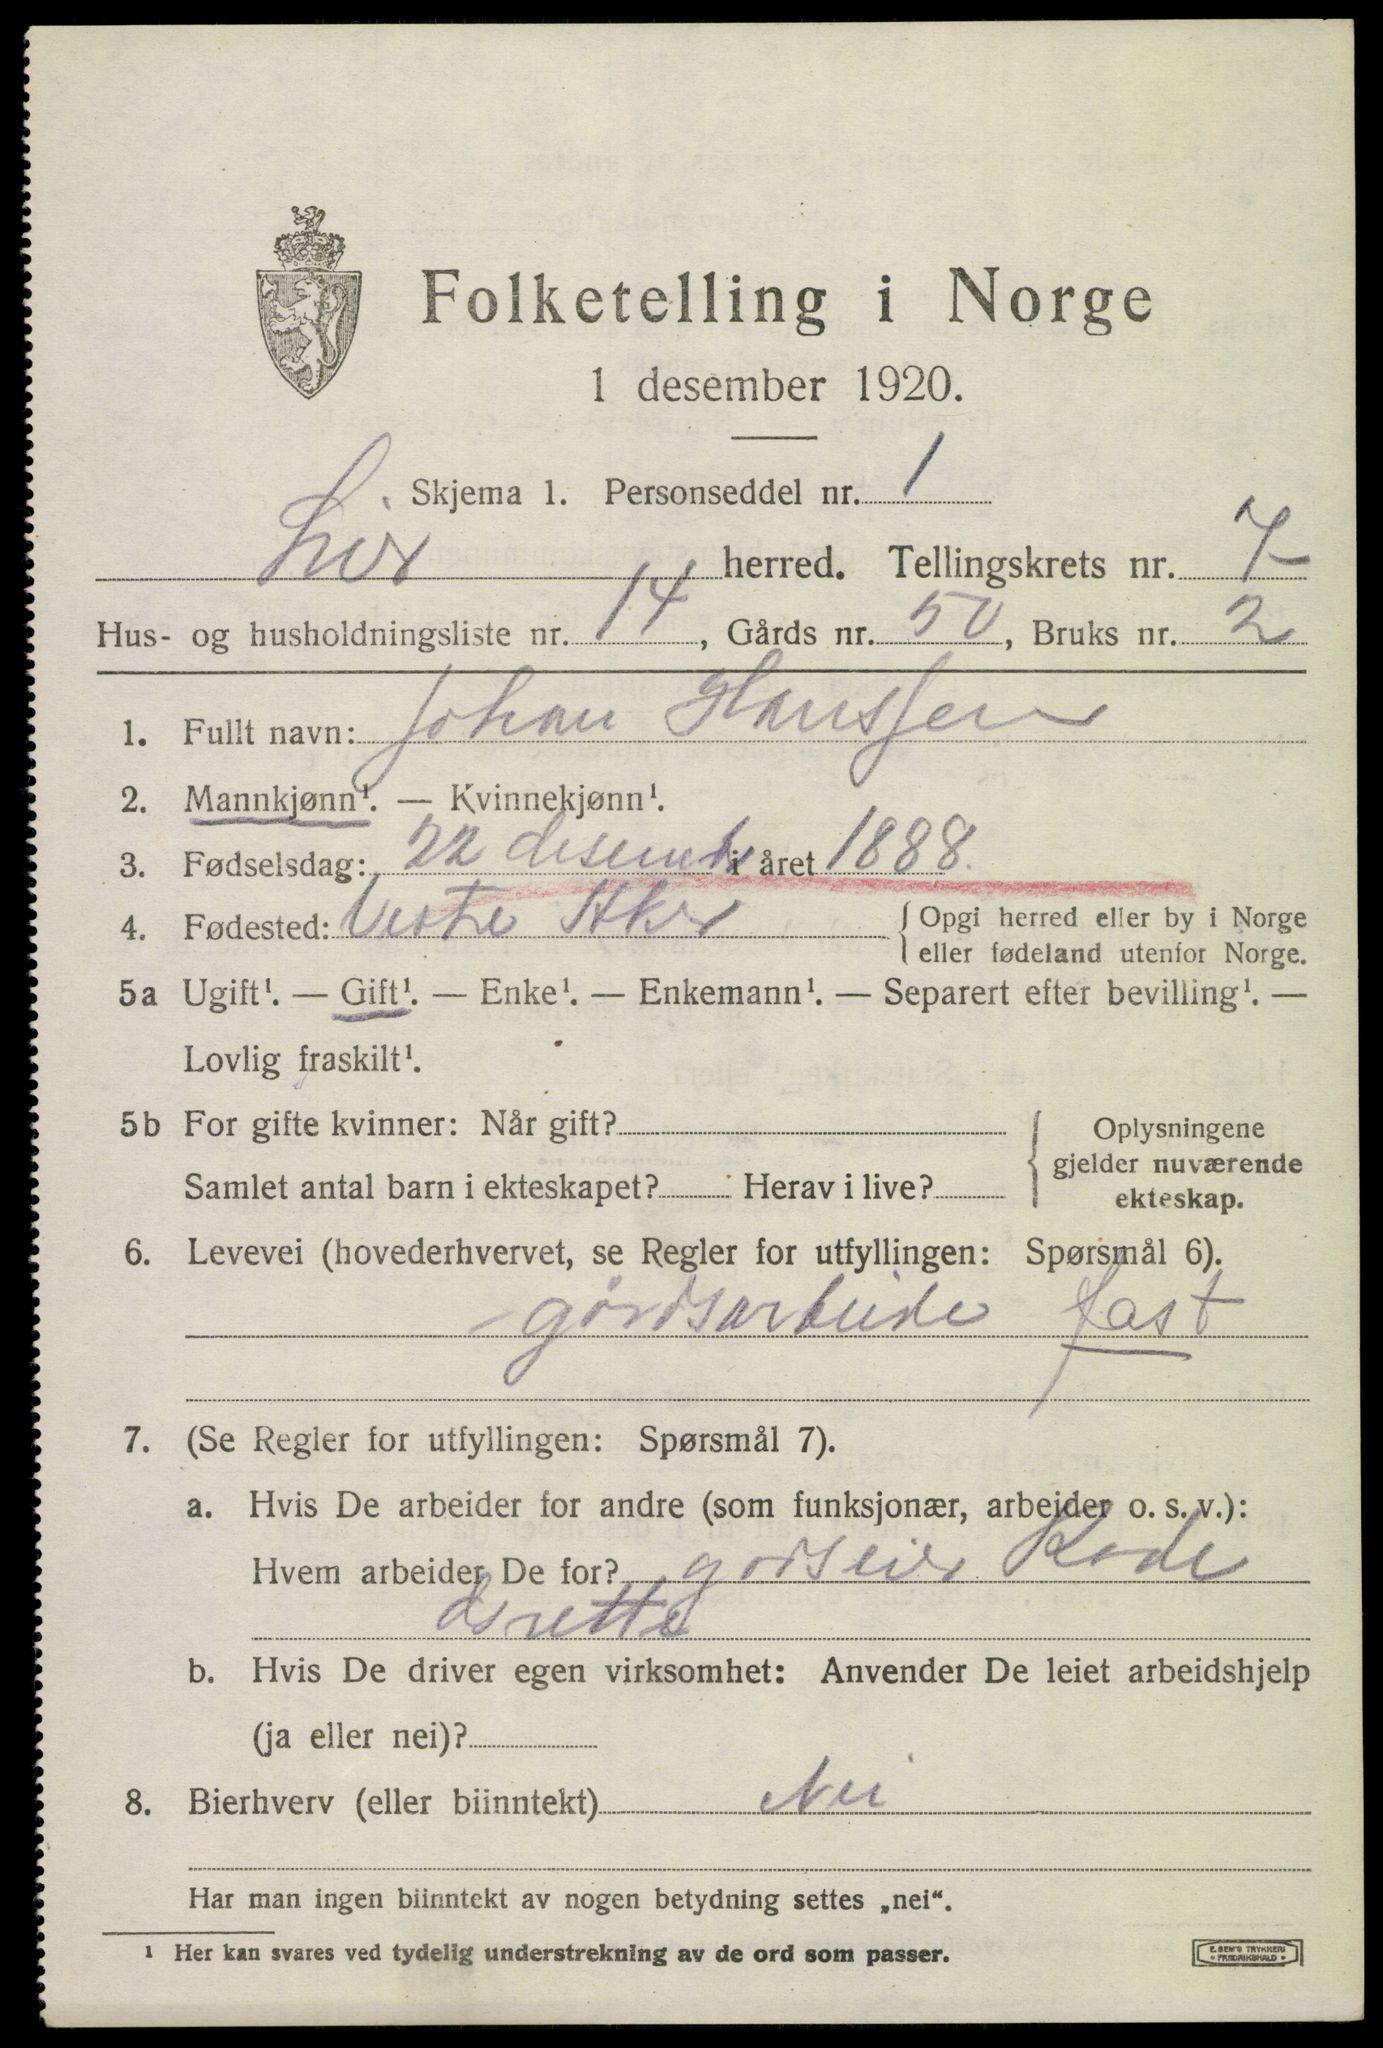 Folketelling i Norge
1 desember 1920.
Skjema 1. Personseddel nr. 1
Lier herred. Tellingskrets nr. 7
Hus- og husholdningsliste nr. 14, Gårds nr. 50, Bruks nr. 2
1. Fullt navn: Johan Hanssen
2. Mannkjønn¹. — Kvinnekjønn¹.
3. Fødselsdag: 22 desember i året 1888.
4. Fødested: Vestre Aker { Opgi herred eller by i Norge
eller fødeland utenfor Norge.
5a Ugift¹. — Gift¹. — Enke¹. — Enkemann¹. — Separert efter bevilling¹. —
Lovlig fraskilt¹.
5b For gifte kvinner: Når gift?
Samlet antal barn i ekteskapet? Herav i live?
{ Oplysningene
gjelder nuværende
ekteskap.
6. Levevei (hovederhvervet, se Regler for utfyllingen: Spørsmål 6).
gårdsarbeide fast
7. (Se Regler for utfyllingen: Spørsmål 7).
a. Hvis De arbeider for andre (som funksjonær, arbeider o. s. v.):
Hvem arbeider De for? gårseier
b. Hvis De driver egen virksomhet: Anvender De leiet arbeidshjelp
(ja eller nei)?
8. Bierhverv (eller biinntekt) Nei
Har man ingen biinntekt av nogen betydning settes „nei“.
¹ Her kan svares ved tydelig understrekning av de ord som passer.
E. SEM'S TRYKKERI
FREDRIKSHALD